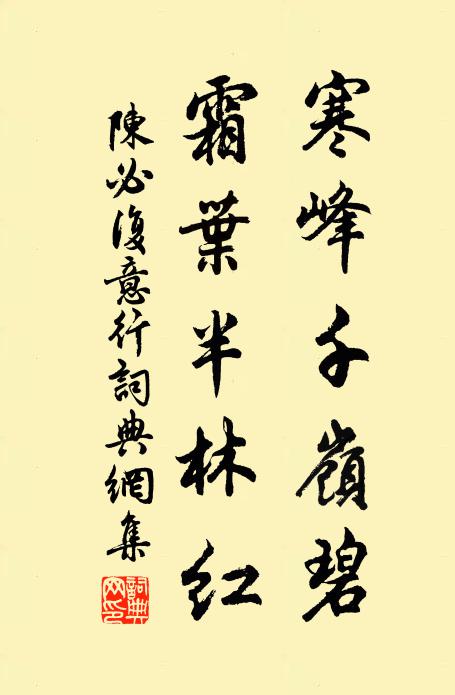 寒峰千嶺碧
霜葉半林紅
陳必復意行詞典網集
詞典網印